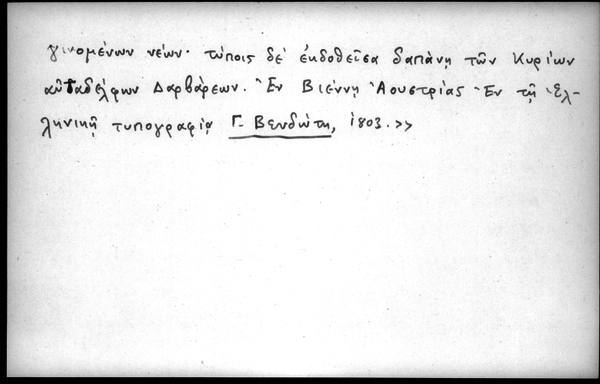 γινομένων νέων· τύποις δὲ ἐκδοθεῖσα δαπάνῃ τῶν Κυρίων
αὐταδέλφων Δαρβάρεων. Ἐν Βιέννῃ Ἀουστρίας Ἐν τῇ Ἑλ-
ληνικῇ τυπογραφίᾳ Γ. Βενδώτη, 1803.>>